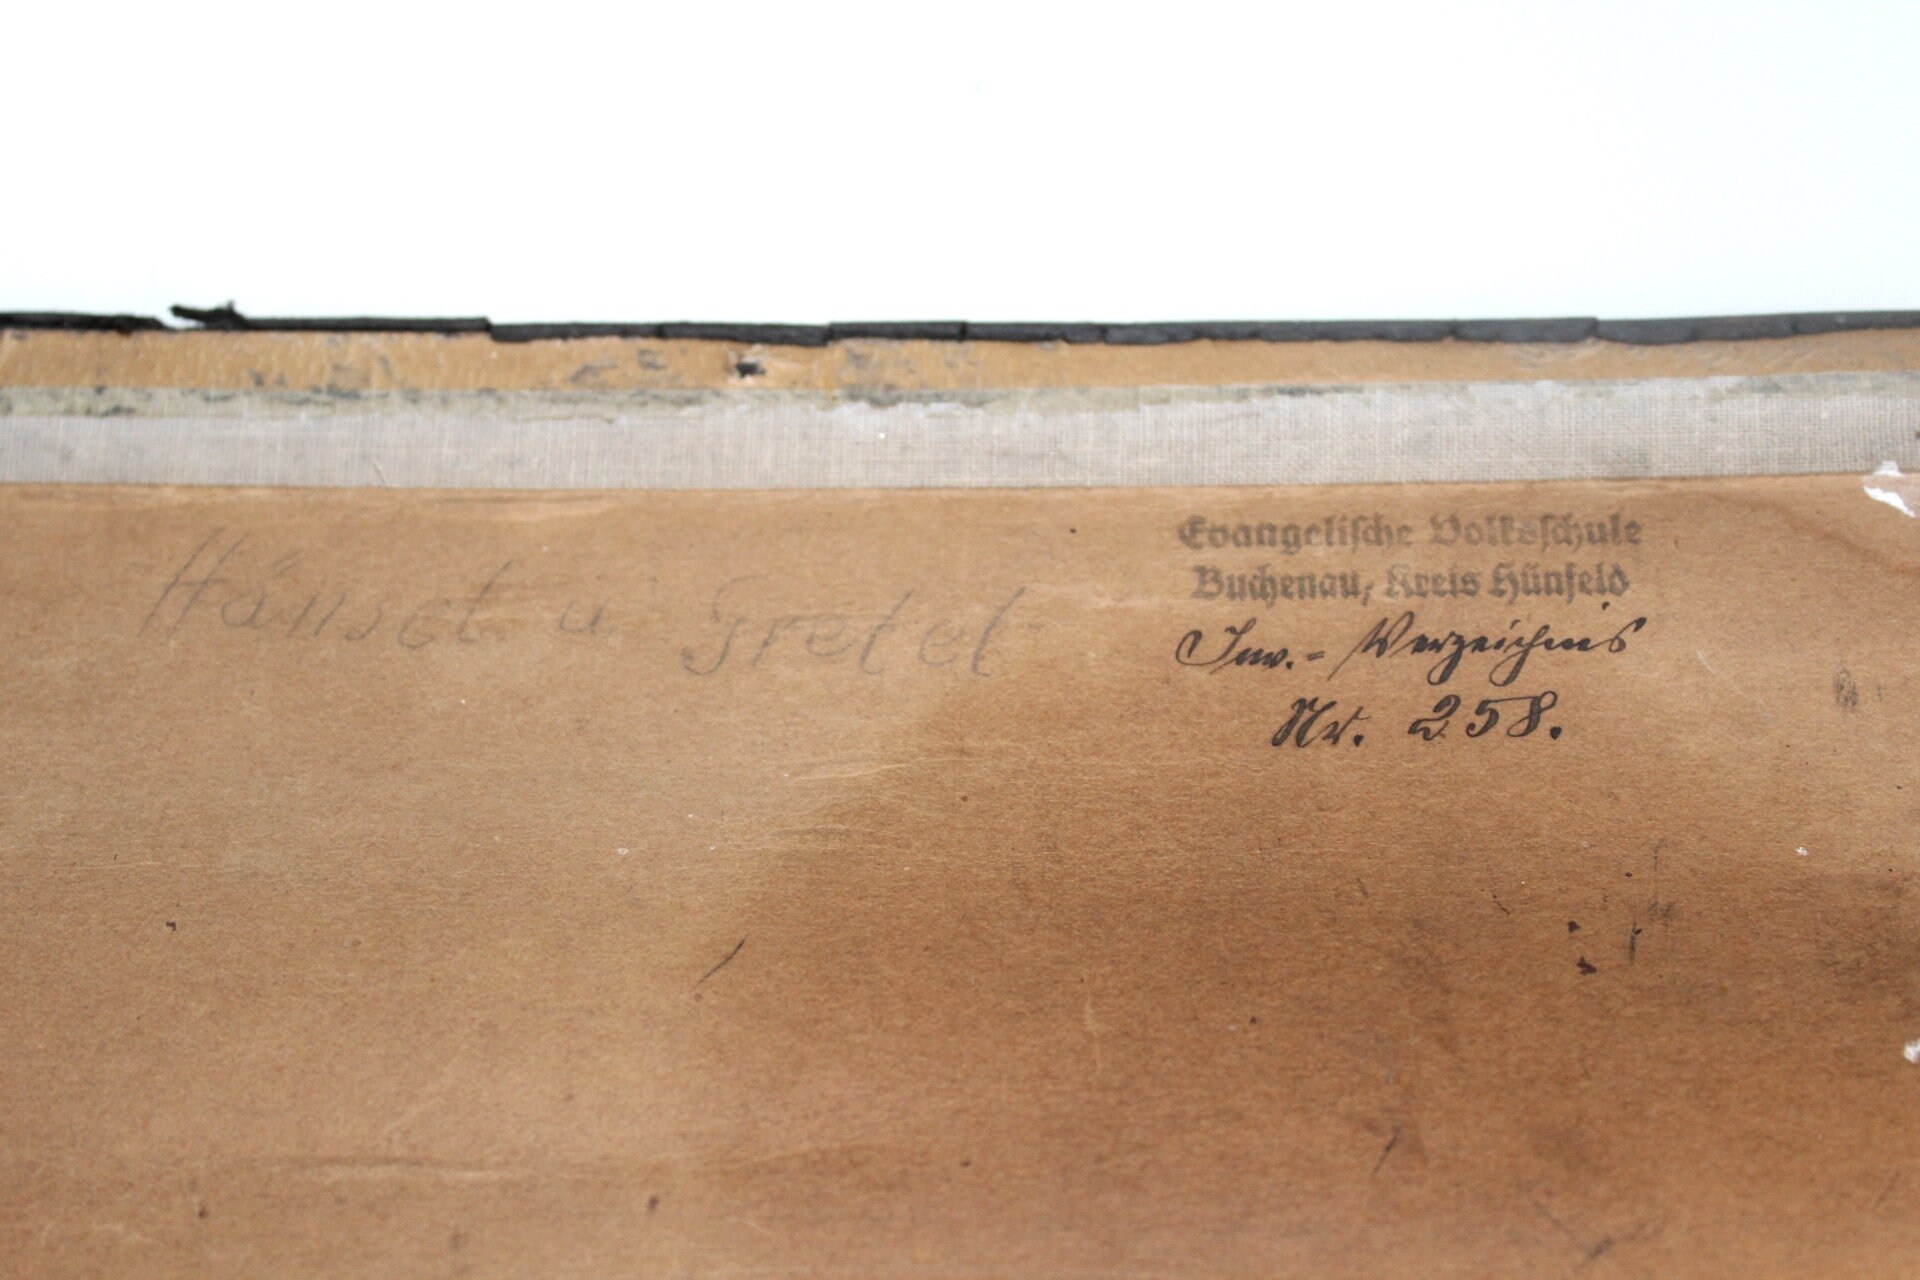 Hänsel u. Gretel
Evangelische Volksschule
Buchenau, Kreis Hünfeld
Inv.-Verzeichnis
Nr. 258.